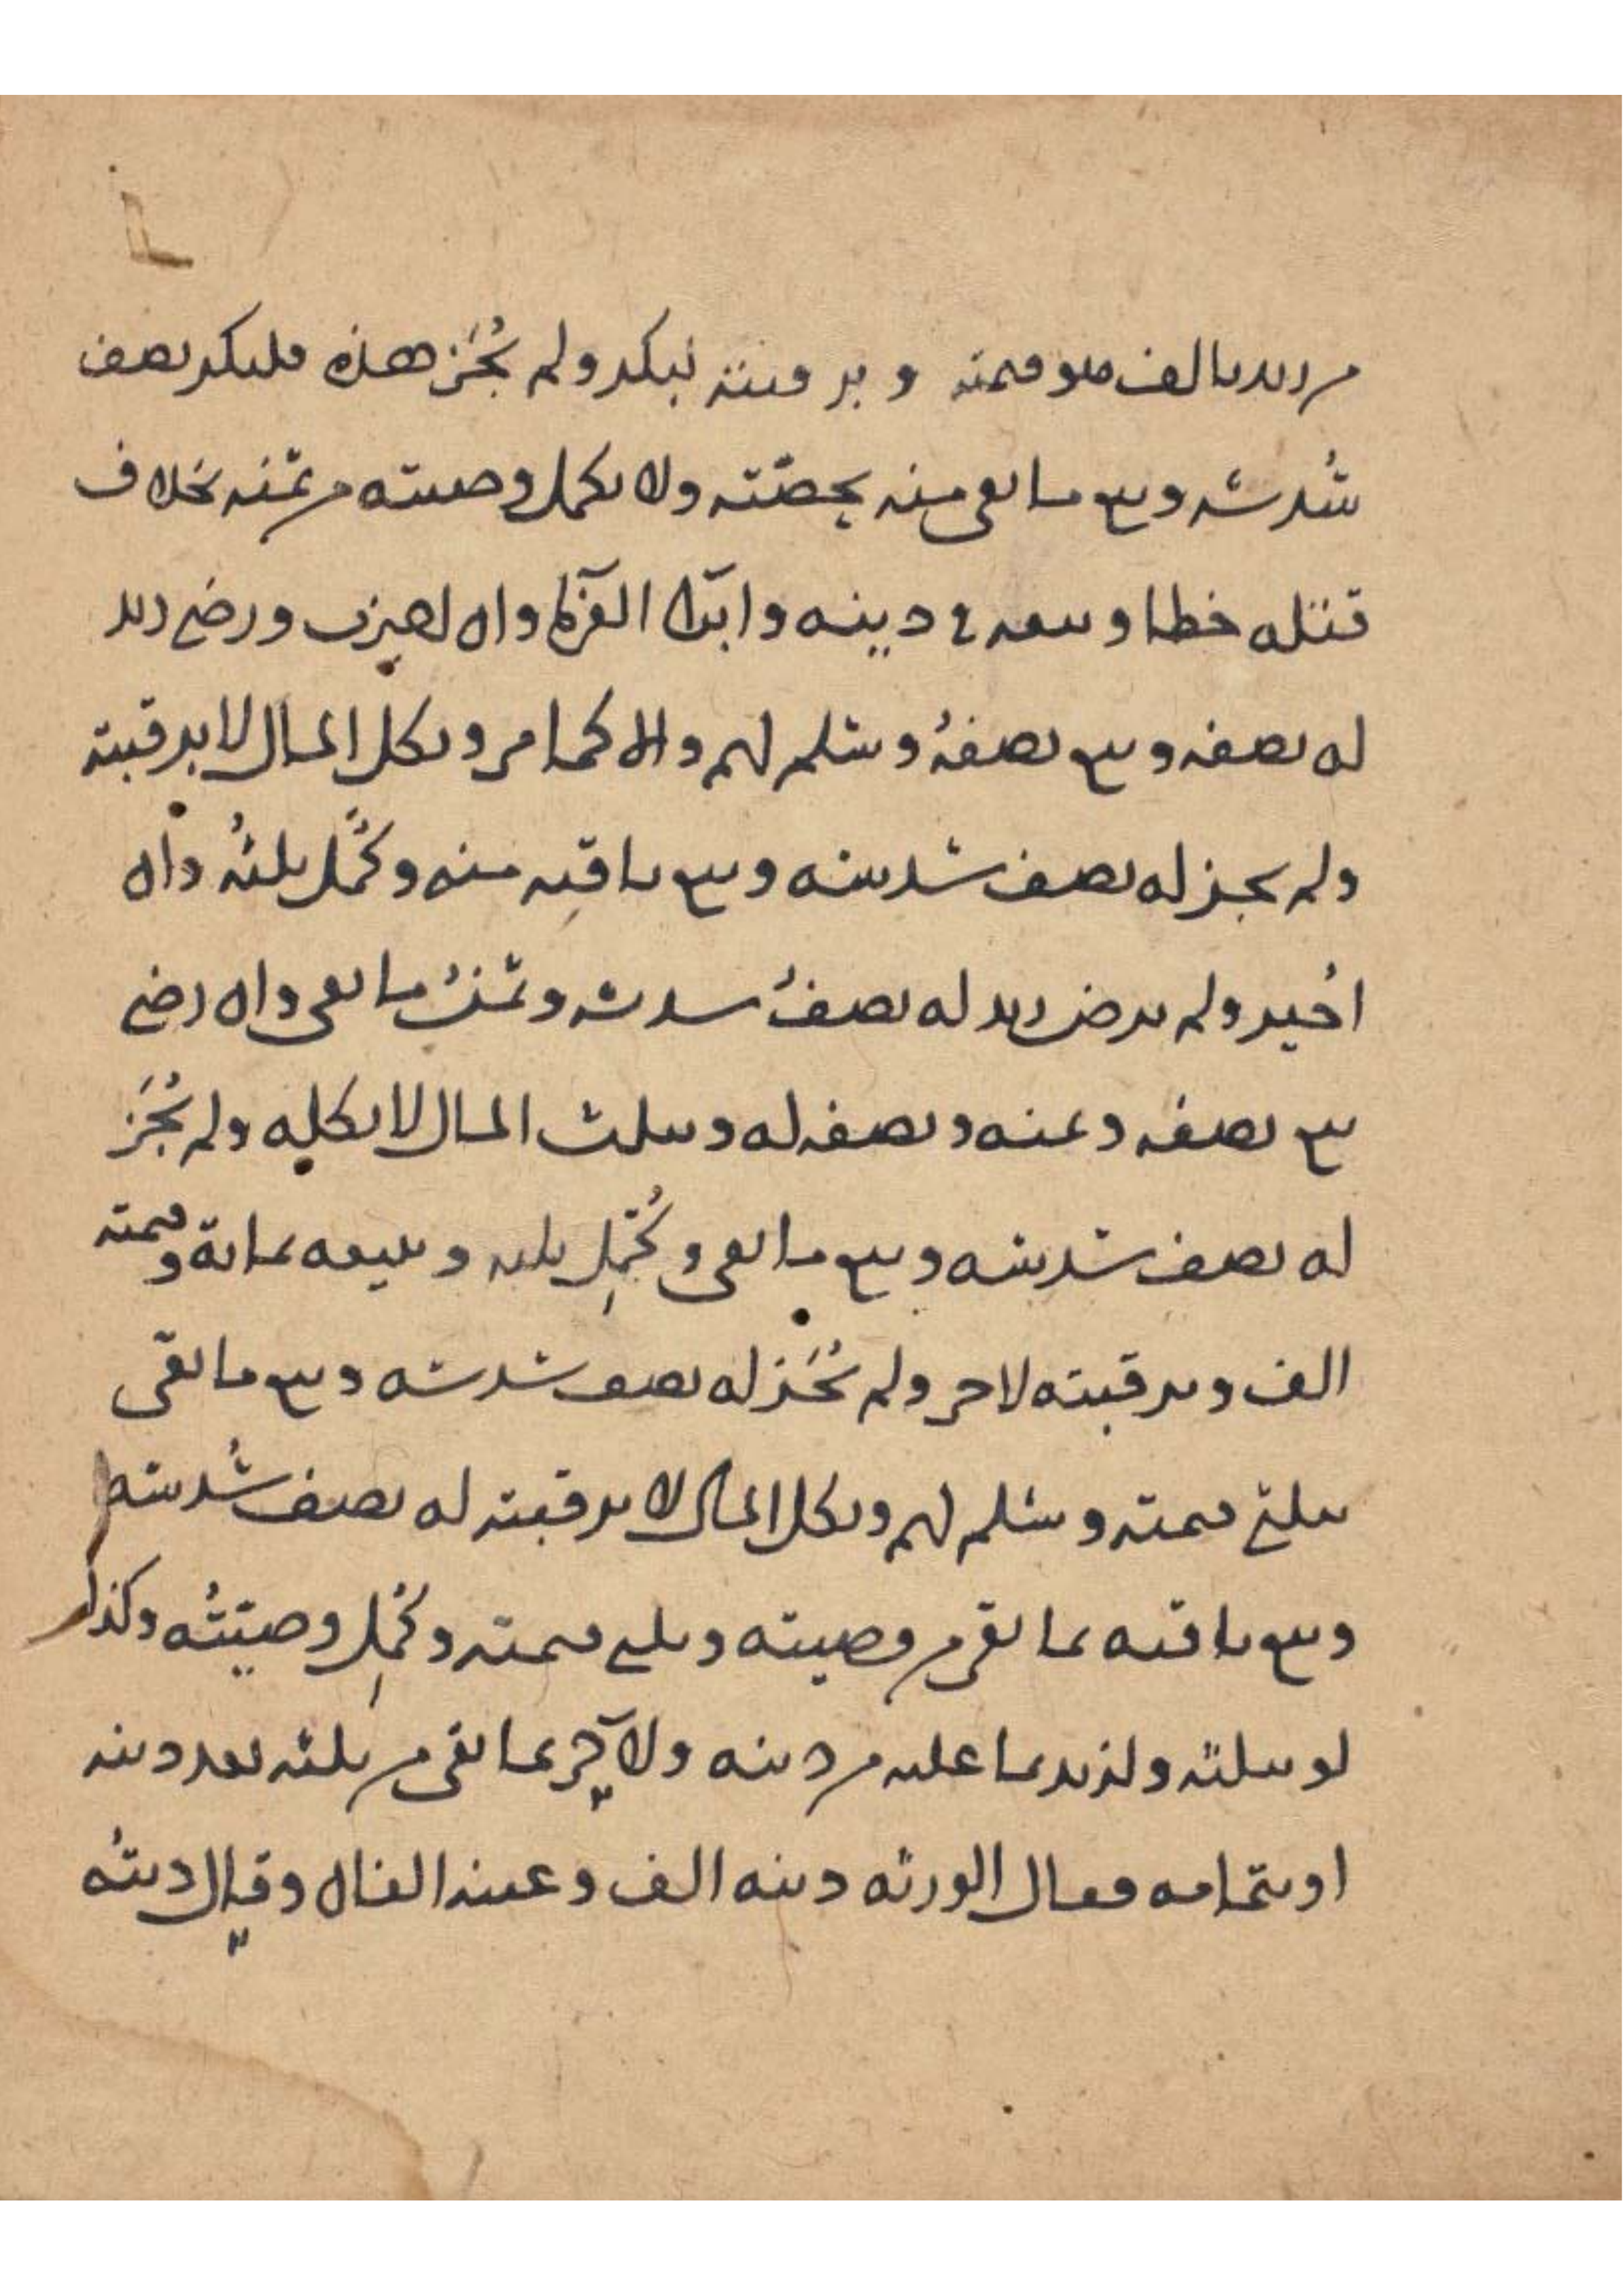 من زيد بالف هو قيمته وبرقبته لبكر ولم يُجَز هذه فلبكر نصف
سُدسه وبيع ما بقى منه بحصّته ولا تكمل وصيته من ثمنه بخلاف
قتله خطا وبيعه في دينه وابتدا الغرما وان اجيزت ورضى زيد
له نصفه وبيع نصفهُ وسلم لهم والا كما مر وبكل المال لا برقبته
ولم يجز له نصف سدسه وبيع باقيه منه وكُمّل ثلثهُ وان
اجُيز ولم يرض زيد له نصفُ سدسه وثمنُ ما بقى وان رضى
بيع نصفه وثمنه ونصفه له وبثلث المال لا بكله ولم يُجَز
له نصف سدسه وبيع ما بقى وكُمّل ثلثه وببيعه بماىة وقيمته
الف وبرقبته لاخر ولم يُجَز له نصف سدسه وبيع ما بقى
بثلثى قيمته وسلم لهم وبكل المال لا برقبته له نصف سُدسه
وبيع باقيه بما بقى من وصيته وثلثى قيمته وكُمّل وصيّتُه وكذا
لو بثلثه ولزيد بما عليه من دينه ولآخر بما بقى من ثلثه بعد دينه
او بتمامه فقال الورثه دينه الف وعينه الفان وقال دينُه